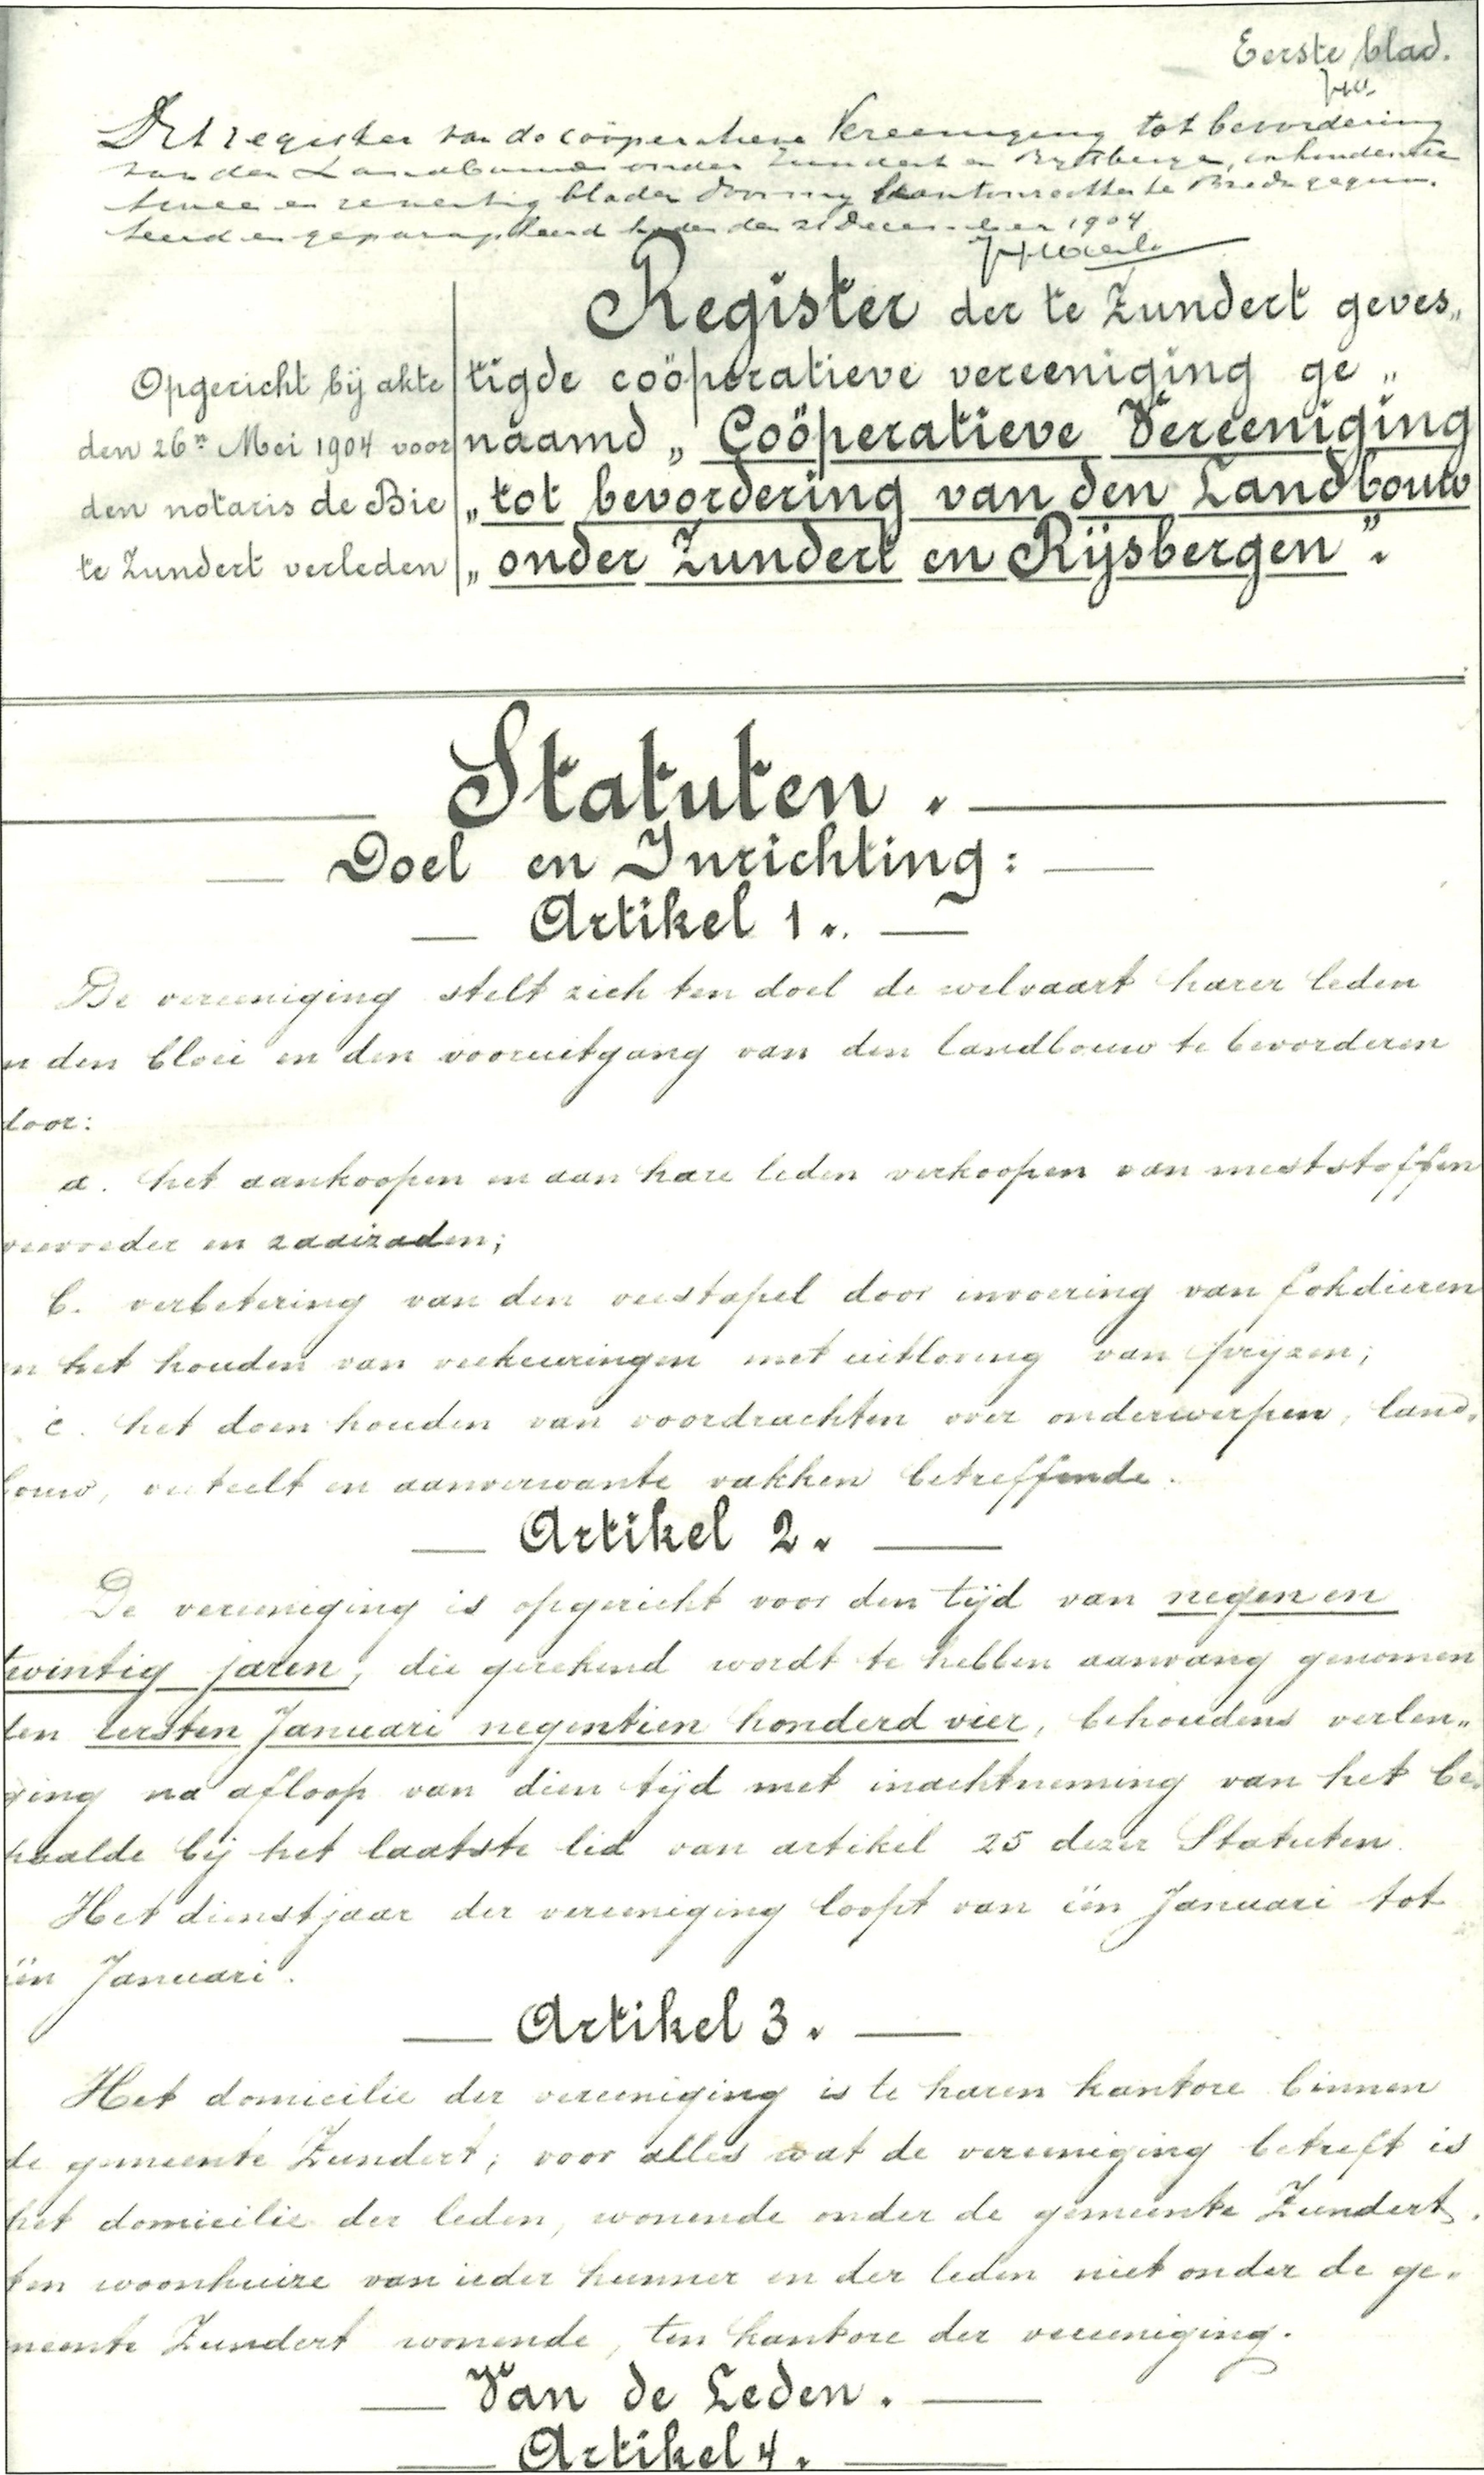 Eerste blad.
Dit register van de coöperatieve Vereeniging tot bevordering
van den Landbouw onder Zundert en Rijsbergen, inhoudende
twee en zeventig bladen door mij Kantonrechter te Breda gequo-
teerd en geparapheerd heden den 21 December 1904
Register der te Zundert geves„
Opgericht bij akte
den 26n Mei 1904 voor
den notaris de Bie
te Zundert verleden
tigde coöperatieve vereeniging ge„
naamd „Coöperatieve Vereeniging
„tot bevordering van den Landbouw
„onder Zundert en Rijsbergen".
Statuten.
Doel en Inrichting:
Artikel 1.
De vereeniging stelt zich ten doel de welvaart harer leden
n den bloei en den vooruitgang van den landbouw te bevorderen
door:
a. het aankoopen en aan hare leden verkoopen van meststoffen
veevoeder en zaaizaden;
b. verbetering van den veestapel door invoering van fokdieren
n het houden van veekeuringen met uitloving van prijzen;
c. het doen houden van voordrachten over onderwerpen, land„
bouw, veeteelt en aanverwante vakken betreffende.
Artikel 2.
De vereeniging is opgericht voor den tijd van negen en
twintig jaren, die gerekend wordt te hebben aanvang genomen
den eersten Januari negentien honderd vier, behoudens verlen„
ging na afloop van dien tijd met inachtneming van het be„
paalde bij het laatste lid van artikel 25 dezer Statuten.
Het dienstjaar der vereeniging loopt van één Januari tot
één Januari.
Artikel 3.
Het domicilie der vereeniging is te haren kantore binnen
de gemeente Zundert; voor alles wat de vereeniging betreft is
het domicilie der leden, wonende onder de gemeente Zundert,
ten woonhuize van ieder hunner en der leden niet onder de ge„
meente Zundert wonende, ten kantore der vereeniging.
Van de Leden.
Artikel 4.